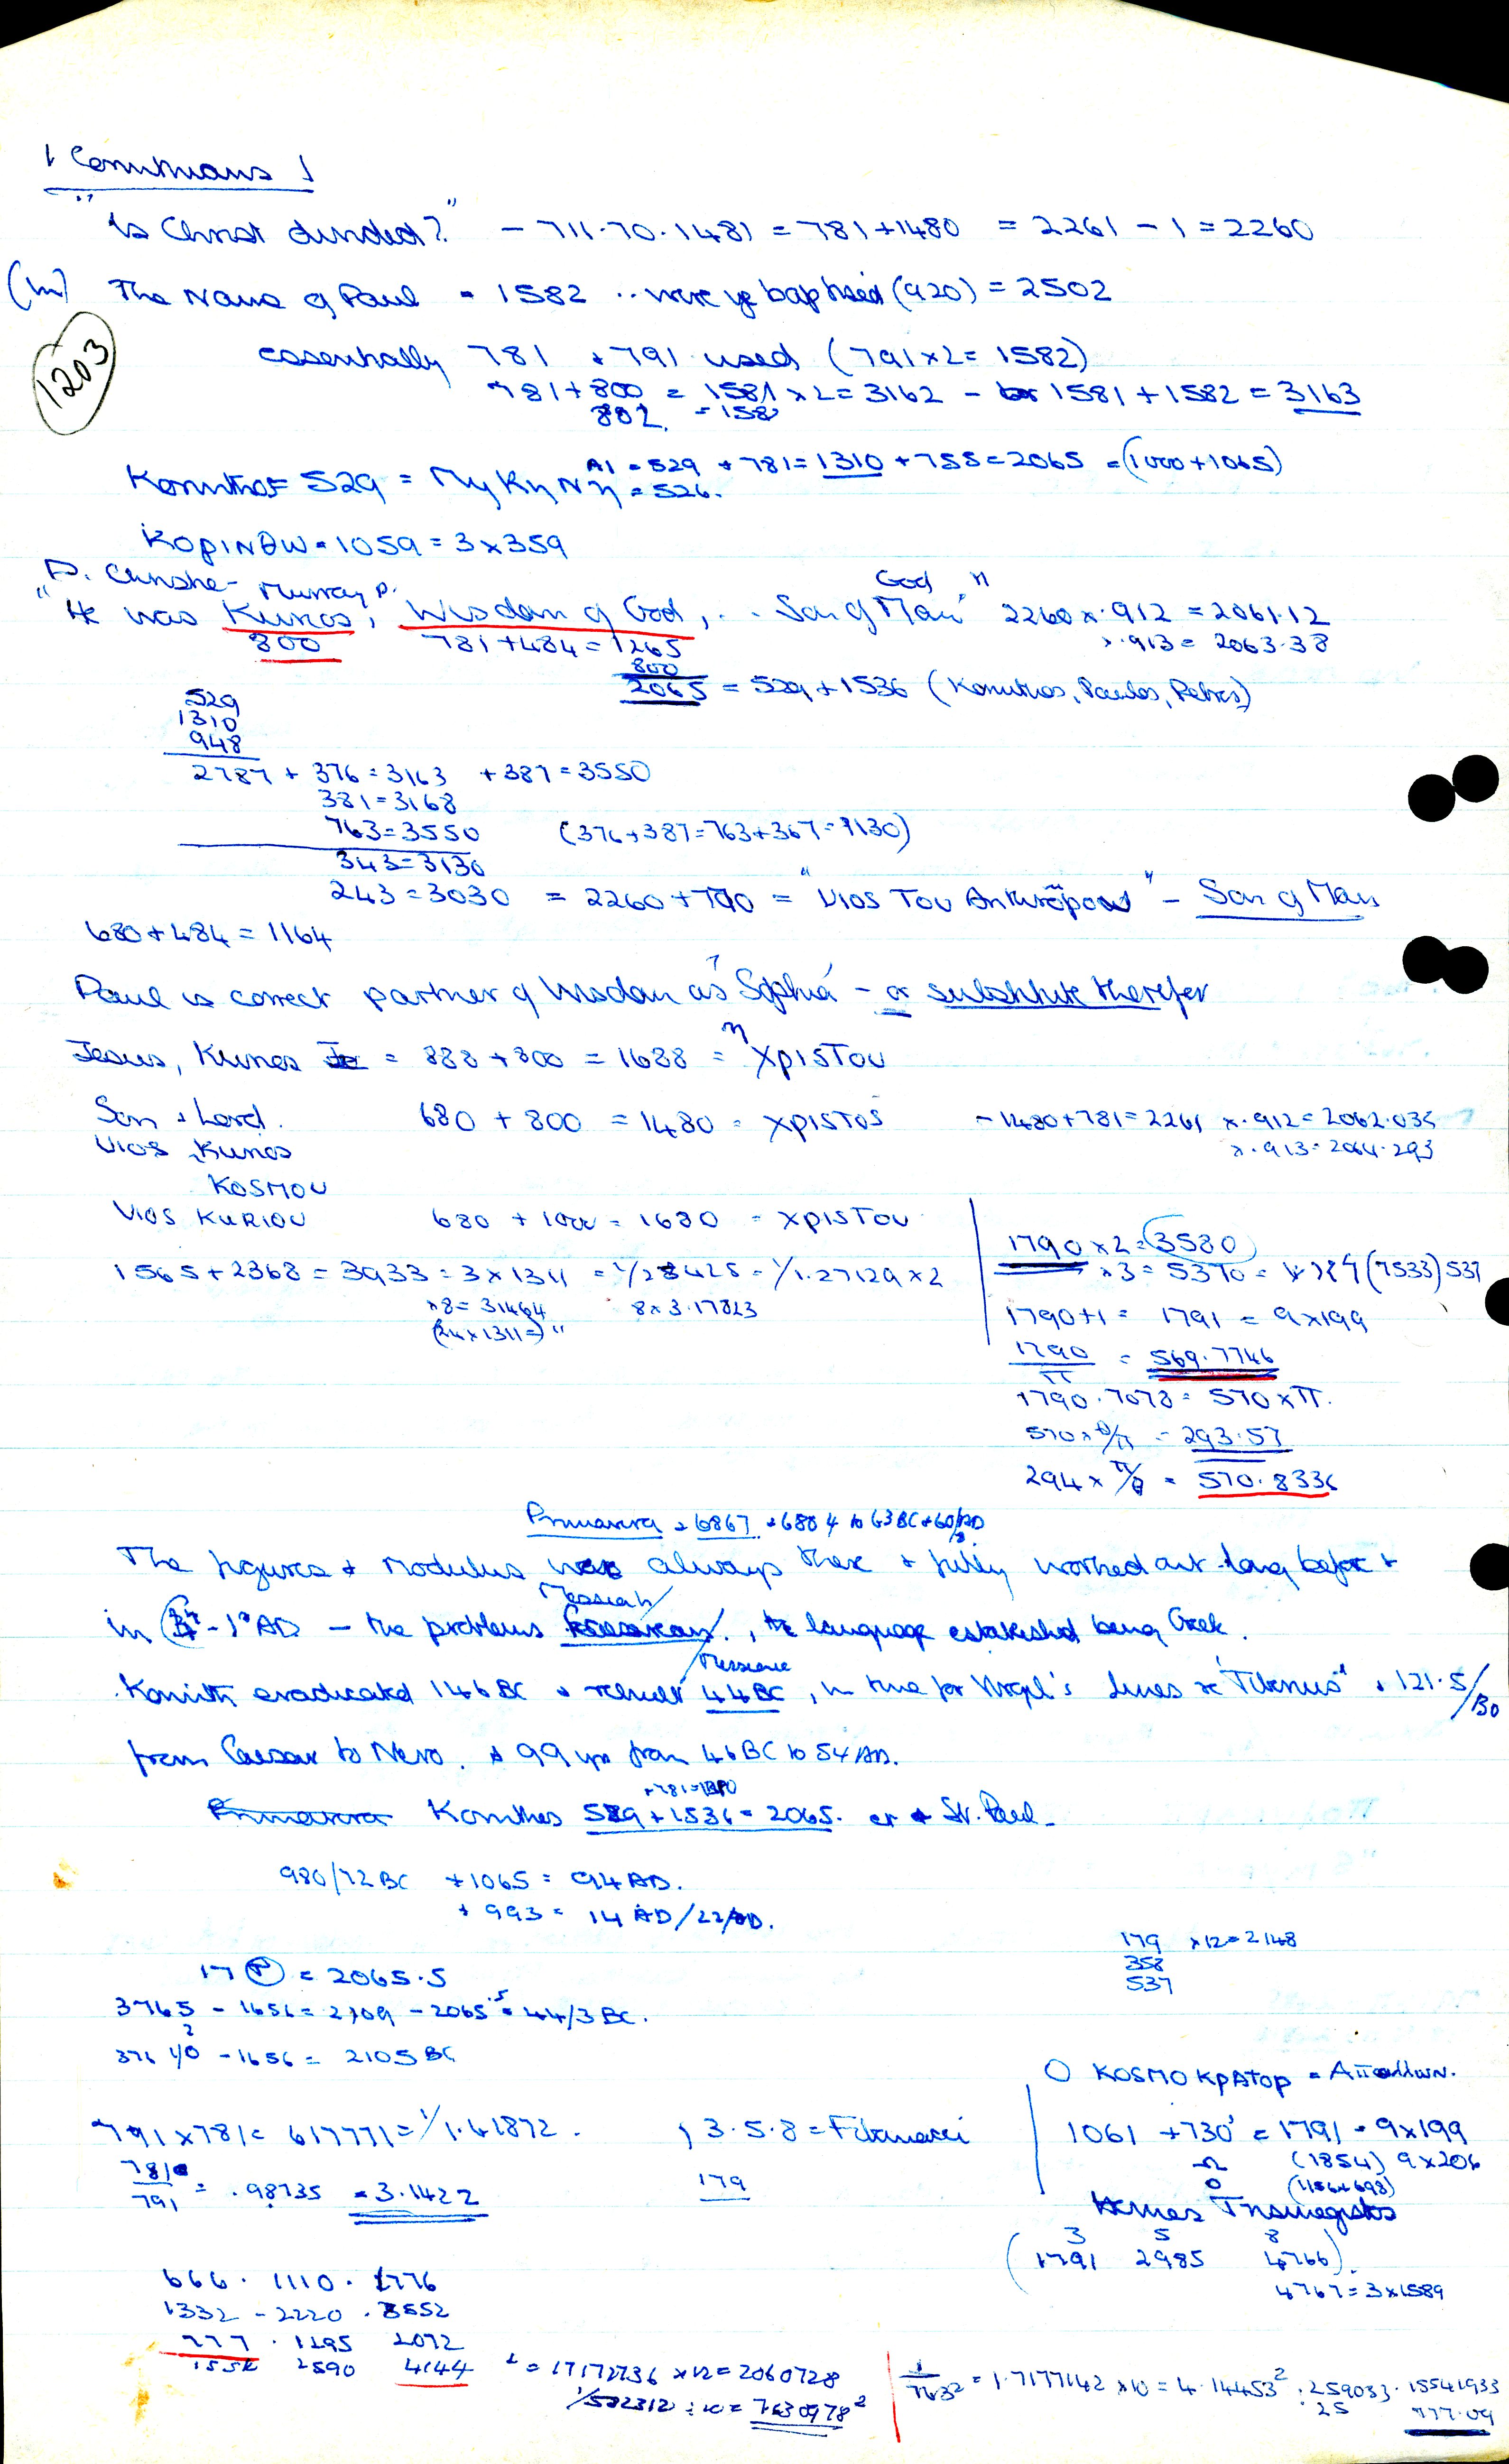 1 Corinthians 1
"Is Christ divided?" - 711.70.1481 = 781+1480 = 2261 - 1 = 2260
The Name of Paul = 1582 .. were ye baptised (920) = 2502
1203
essentially 781 + 791 used (791x2= 1582)
781+800 = 1581 x2= 3162 - 1581+1582 = 3163
802. = 158
A1 = 529 + 781= 1310 +755=2065 = (1000+1065)
Korinthos 529 = MyKyNy = 526.
KopiNθw = 1059 = 3x359
D. Christie-Murray p.
God
"He was Kurios, Wisdom of God, .. Son of Man" 2260 x .912 = 2061.12
800 781+484= 1265 x .913 = 2063.38
800
2065 = 529+1536 (Korinthos, Paulos, Petros)
529
1310
948
2787 + 376 = 3163 +387 = 3550
381=3168
763=3550 (376+387=763+367=1130)
343=3130
243=3030 = 2260+770 = "Uios Tou Anthrōpou" - Son of Man
680+484 = 1164
Paul is correct partner of Wisdom as 'Sophia' - or substitute therefor
Jesus, Kurios = 888 + 800 = 1688 = η XpisTou
Son + Lord. 680 + 800 = 1480 = XpisTos - 1480+781= 2261 x .912= 2062.034
Uios, Kurios x .913= 2064.293
KOSMOU
Uios KURIOU 680 + 1000 = 1680 = XpisTou
1565+2368 = 3933 = 3x1311 = 1/25425 = 1/1.27129 x 2
x8= 31464 8 x 3.17823
(24x1311=) "
1790 x2 = 3580
x3 = 5370 = (7533) 537
1790+1 = 1791 = 9x199
1790/π = 569.7746
1790.7078 = 570 x π.
570 x θ/π = 293.57
294 x π/θ = 570.8336
Primavera = 6867 + 6804 to 63BC + 60/AD
The figures + modulus were always there + fully worked out long before +
Messiah
in - 1° AD - the problems, the language established being Greek.
Messiah
Korinth eradicated 146 BC + rebuilt 44BC, in time for Virgil's lines re "Tiberinus", 121.5/130
from Caesar to Nero. + 99 yrs from 46BC to 54 AD.
+781=1310
Primavera Korinthos 529+1536=2065. St. Paul.
980/72BC +1065 = 94 AD.
+993 = 14 AD/22AD.
17 P = 2065.5
3765 - 1656 = 2109 - 2065.5 = 44/3 BC.
376 1/0 - 1656 = 2105 BC
179 x12=2148
358
537
O KOSMO KpATop = Απολλων.
791x781= 617771= 1/1.61872. , 3.5.8 = Fibonacci
781/791 = .98735 = 3.1422
179
1061 + 730 = 1791 = 9x199
Ω (1854) 9x206
O (1156+698)
Hermes Trismegistos
3 5 8
(1791 2985 4766)
4767=3x1589
666. 1110. 1776
1332 - 2220 . 3552
777. 1295 2072
1554 2590 4144 ² = 17172736 x12= 2060728
1/582312 ÷ 10 = 7630978²
1/763² = 1.7177142 x10 = 4.14453², 259033. 15541933
.25 777.09